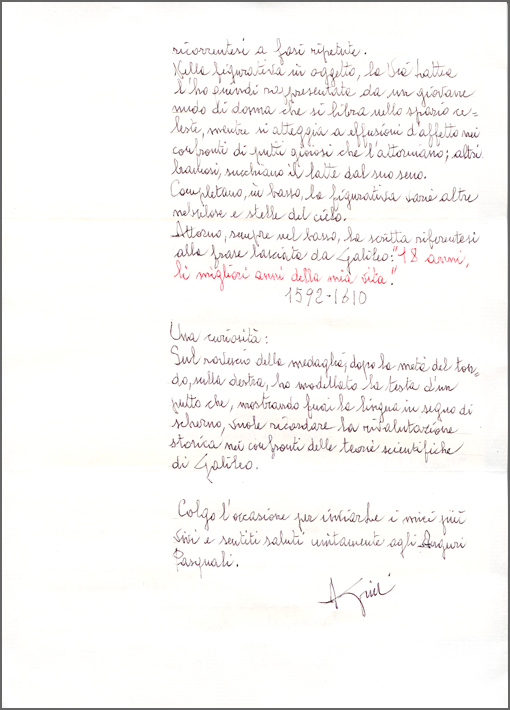 ricorrentesi a fasi ripetute.
Nella figurativa in oggetto, la Via Lattea
l'ho quindi rappresentata da un giovane
nudo di donna che si libra nello spazio ce=
leste, mentre si atteggia a effusioni d'affetto nei
confronti di putti gioiosi che l'attorniano; altri
bramosi, succhiano il latte dal suo seno.
Completano, in basso, la figurativa varie altre
nebulose e stelle del cielo.
Attorno, sempre nel basso, la scritta riferentesi
alla frase lasciata da Galileo: "18 anni,
li migliori anni della mia vita."
1592-1610
Una curiosità:
Sul rovescio della medaglia, dopo la metà del ton=
do, sulla destra, ho modellato la testa d'un
putto che, mostrando fuori la lingua in segno di
scherno, vuole ricordare la rivalutazione
storica nei confronti delle teorie scientifiche
di Galileo.
Colgo l'occasione per inviarLe i miei più
vivi e sentiti saluti unitamente agli Auguri
Pasquali.